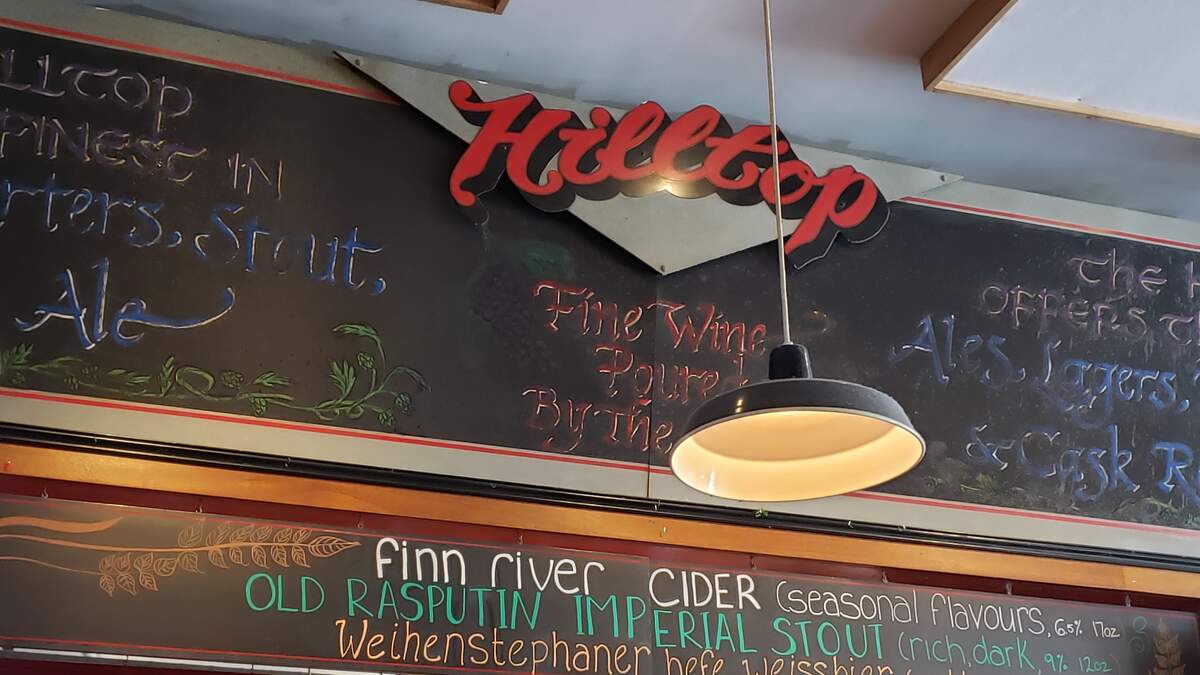 Hilltop
LLTOP
FINEST IN
rters, Stout,
Ale
Fine Wine
Poured
By The
The
OFFERS
Ales, Lagers,
& Cask R
finn river CIDER (seasonal flavours, 6.5% 17oz
OLD RASPUTIN IMPERIAL STOUT (rich, dark, 9% 12oz
Weihenstephaner hefe weissbier